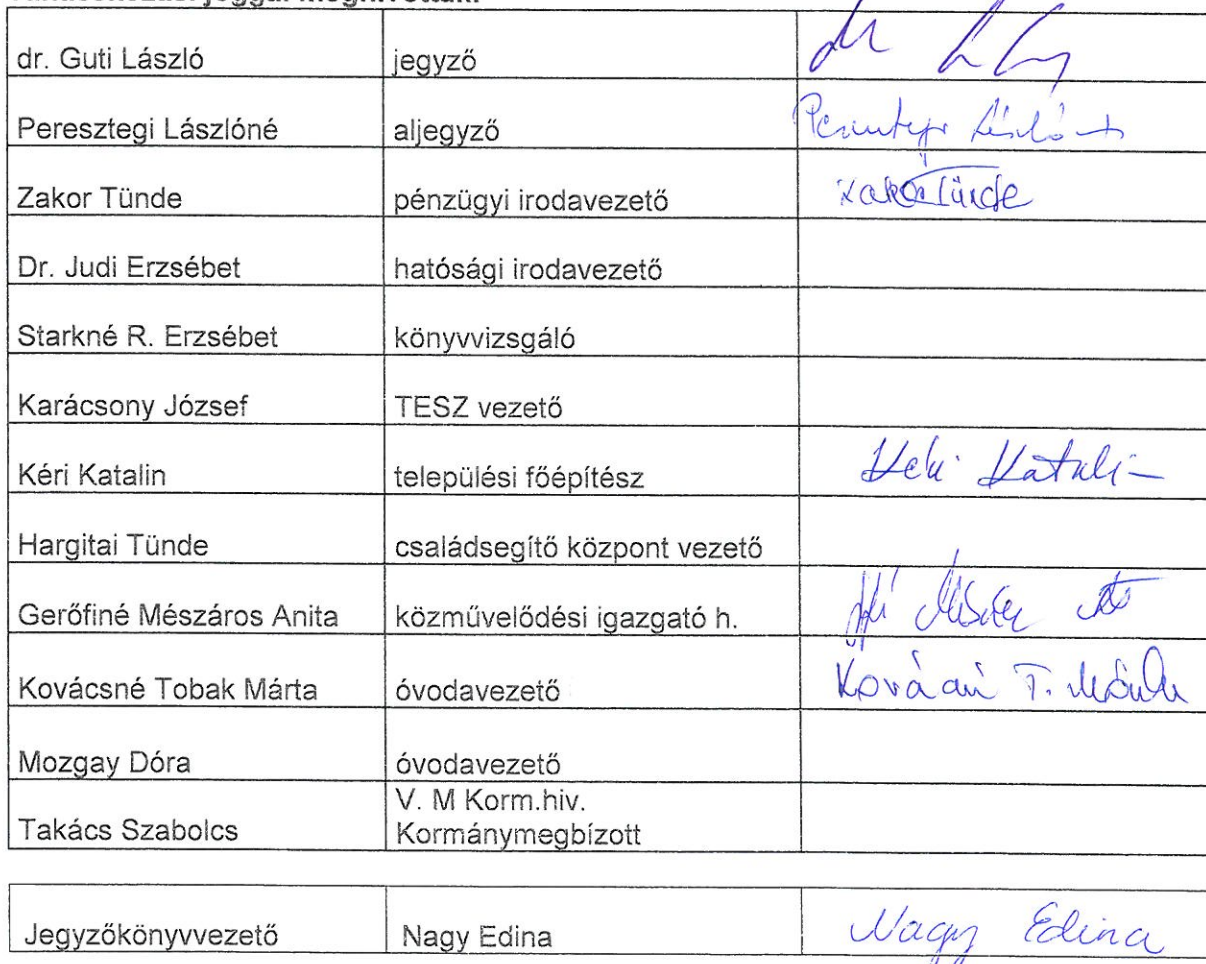 dr. Guti László jegyző
Peresztegi Lászlóné aljegyző
Zakor Tünde pénzügyi irodavezető Zakor Tünde
Dr. Judi Erzsébet hatósági irodavezető
Starkné R. Erzsébet könyvvizsgáló
Karácsony József TESZ vezető
Kéri Katalin települési főépítész Kéri Katalin
Hargitai Tünde családsegítő központ vezető
Gerőfiné Mészáros Anita közművelődési igazgató h.
Kovácsné Tobak Márta óvodavezető Kovácsné T. Márta
Mozgay Dóra óvodavezető
V. M Korm.hiv.
Takács Szabolcs Kormánymegbízott
Jegyzőkönyvvezető Nagy Edina Nagy Edina